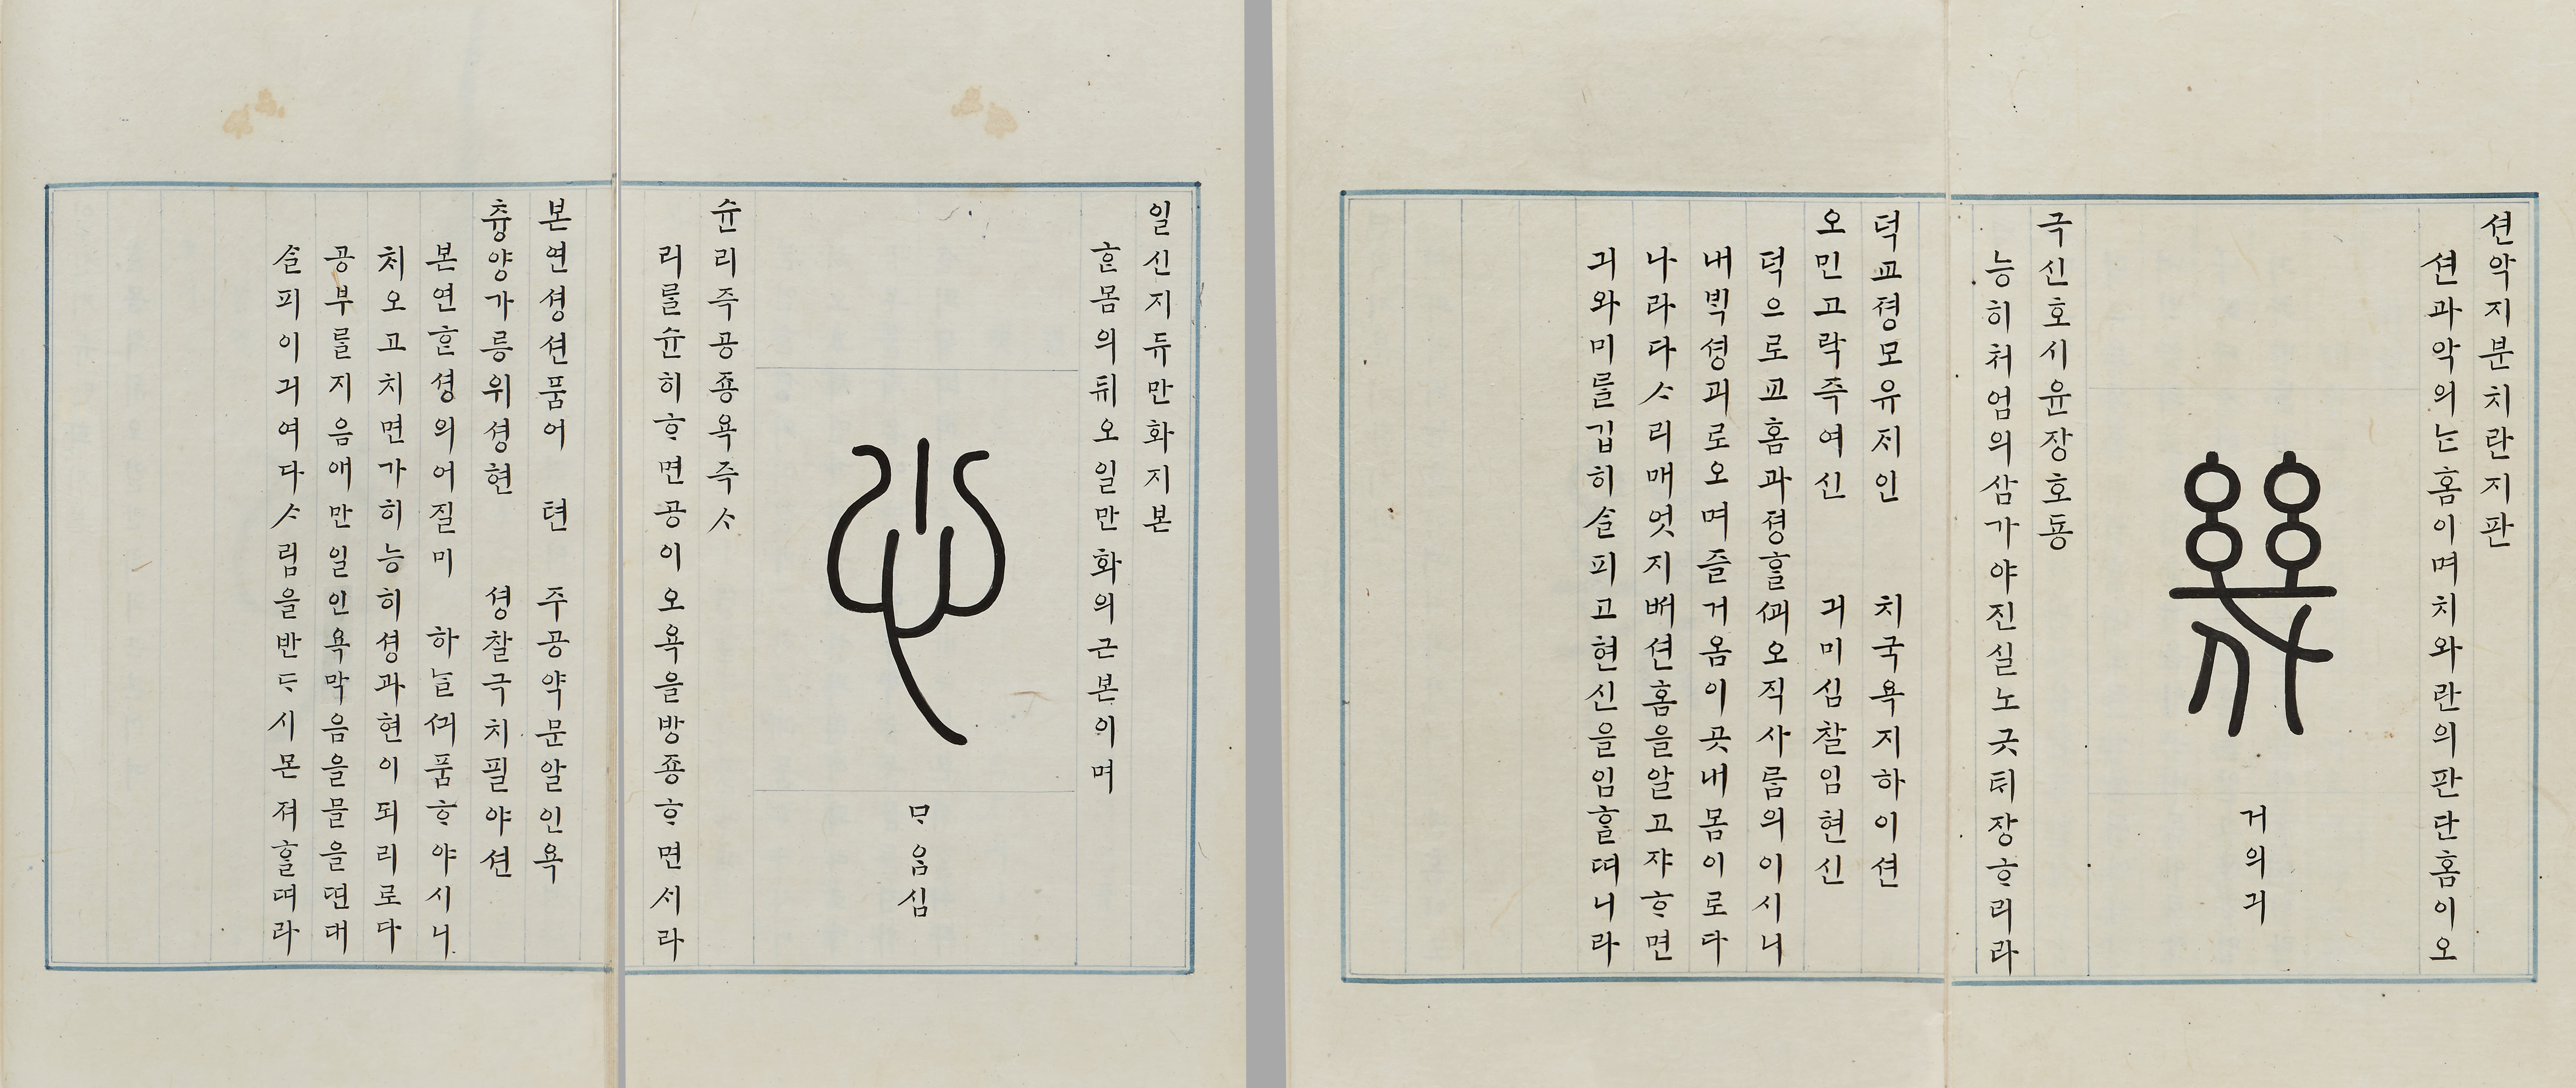 션악지분치란지판
션과악의ᄂᆞᆫ홈이며치와란의판단홈이오
幾
거의긔
극신호시윤장호동
능히처엄의삼가야진실노긋ᄐᆡ장ᄒᆞ리라
덕교졍모유ᄌᆡ인 치국욕지하이션
오민고락즉여신 긔미심찰임현신
덕으로교홈과졍ᄒᆞᆯᄭᅬ오직사름의이시니
내ᄇᆡᆨ셩괴로오며즐거옴이곳내몸이로다
나라다ᄉᆞ리매엇지ᄡᅥ션홈을알고쟈ᄒᆞ면
긔와미를깁히ᄉᆞᆯ피고현신을임ᄒᆞᆯᄯᅧ니라
일신지듀만화지본
ᄒᆞᆫ몸의뒤오일만화의근본이며
心
ᄆᆞ음심
슌리즉공죵욕즉ᄉᆞ
리를슌히ᄒᆞ면공이오욕을방죵ᄒᆞ면ᄉᆡ라
본연셩션품어 텬 주공약문알인욕
츙양가릉위셩현 셩찰극치필야션
본연ᄒᆞᆫ셩의어질미 하ᄂᆞᆯᄭᅴ품ᄒᆞ야시니
ᄎᆡ오고치면가히능히셩과현이되리로다
공부를지음애만일인욕막음을믈을ᄯᅧᆫ대
ᄉᆞᆯ피이긔여다ᄉᆞ림을반ᄃᆞ시몬져ᄒᆞᆯᄯᅧ라